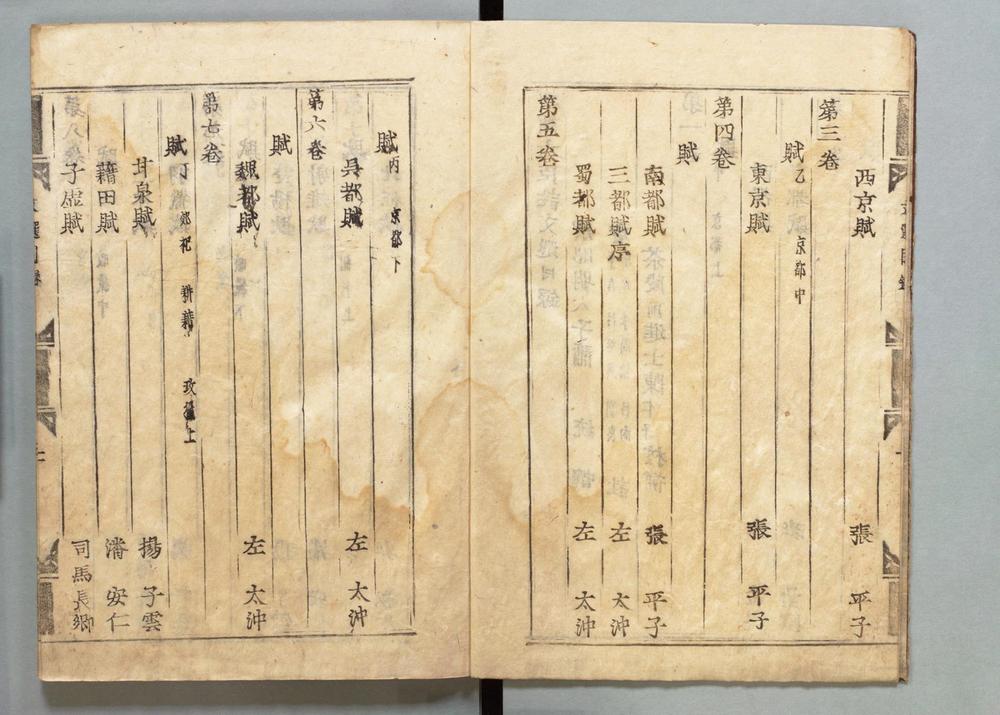 西京賦 張平子
第三卷
賦乙 京都中
東京賦 張平子
第四卷
賦
南都賦 張平子
三都賦序 左太沖
蜀都賦 左太沖
第五卷
賦丙 京都下
吳都賦 左太沖
第六卷
賦
魏都賦 左太沖
第七卷
賦丁 郊祀 耕藉 畋獵上
甘泉賦 揚子雲
藉田賦 潘安仁
子虛賦 司馬長卿